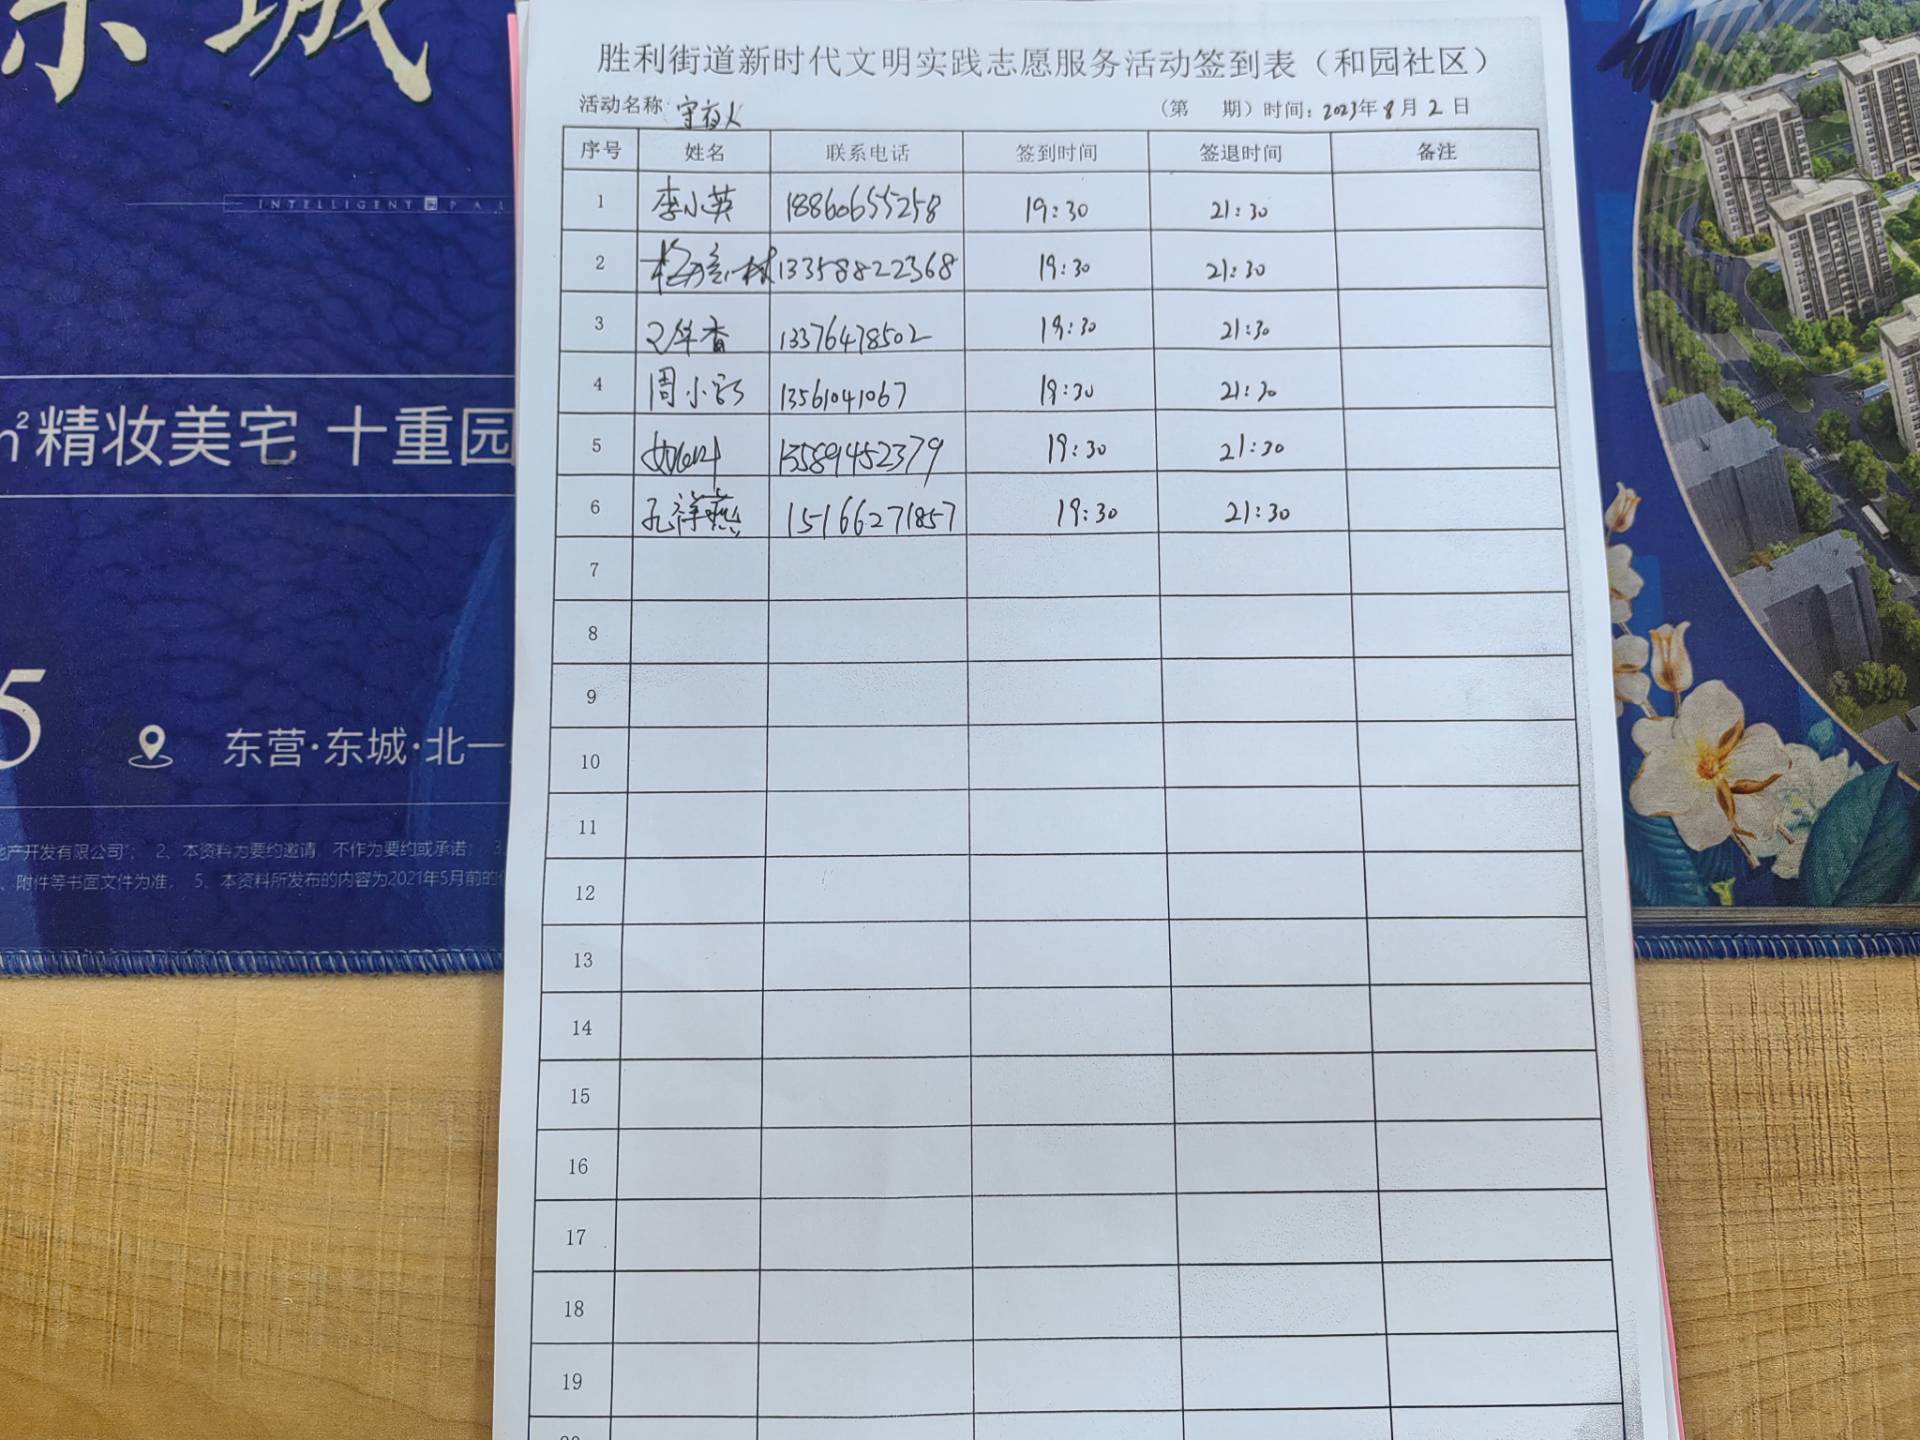 东城
INTELLIGENT PAL
m²精妆美宅 十重园
5
东营·东城·北一
地产开发有限公司”； 2、本资料为要约邀请，不作为要约或承诺； 3
、附件等书面文件为准； 5、本资料所发布的内容为2021年5月前的
胜利街道新时代文明实践志愿服务活动签到表（和园社区）
活动名称：守夜人 （第 期）时间：2023年8月2日
序号 姓名 联系电话 签到时间 签退时间 备注
1 李小英 18860655258 19:30 21:30
2 13358822368 19:30 21:30
3 13376478502 19:30 21:30
4 周小 13561041067 19:30 21:30
5 13589452379 19:30 21:30
6 孔祥燕 15166271857 19:30 21:30
7
8
9
10
11
12
13
14
15
16
17
18
19
20